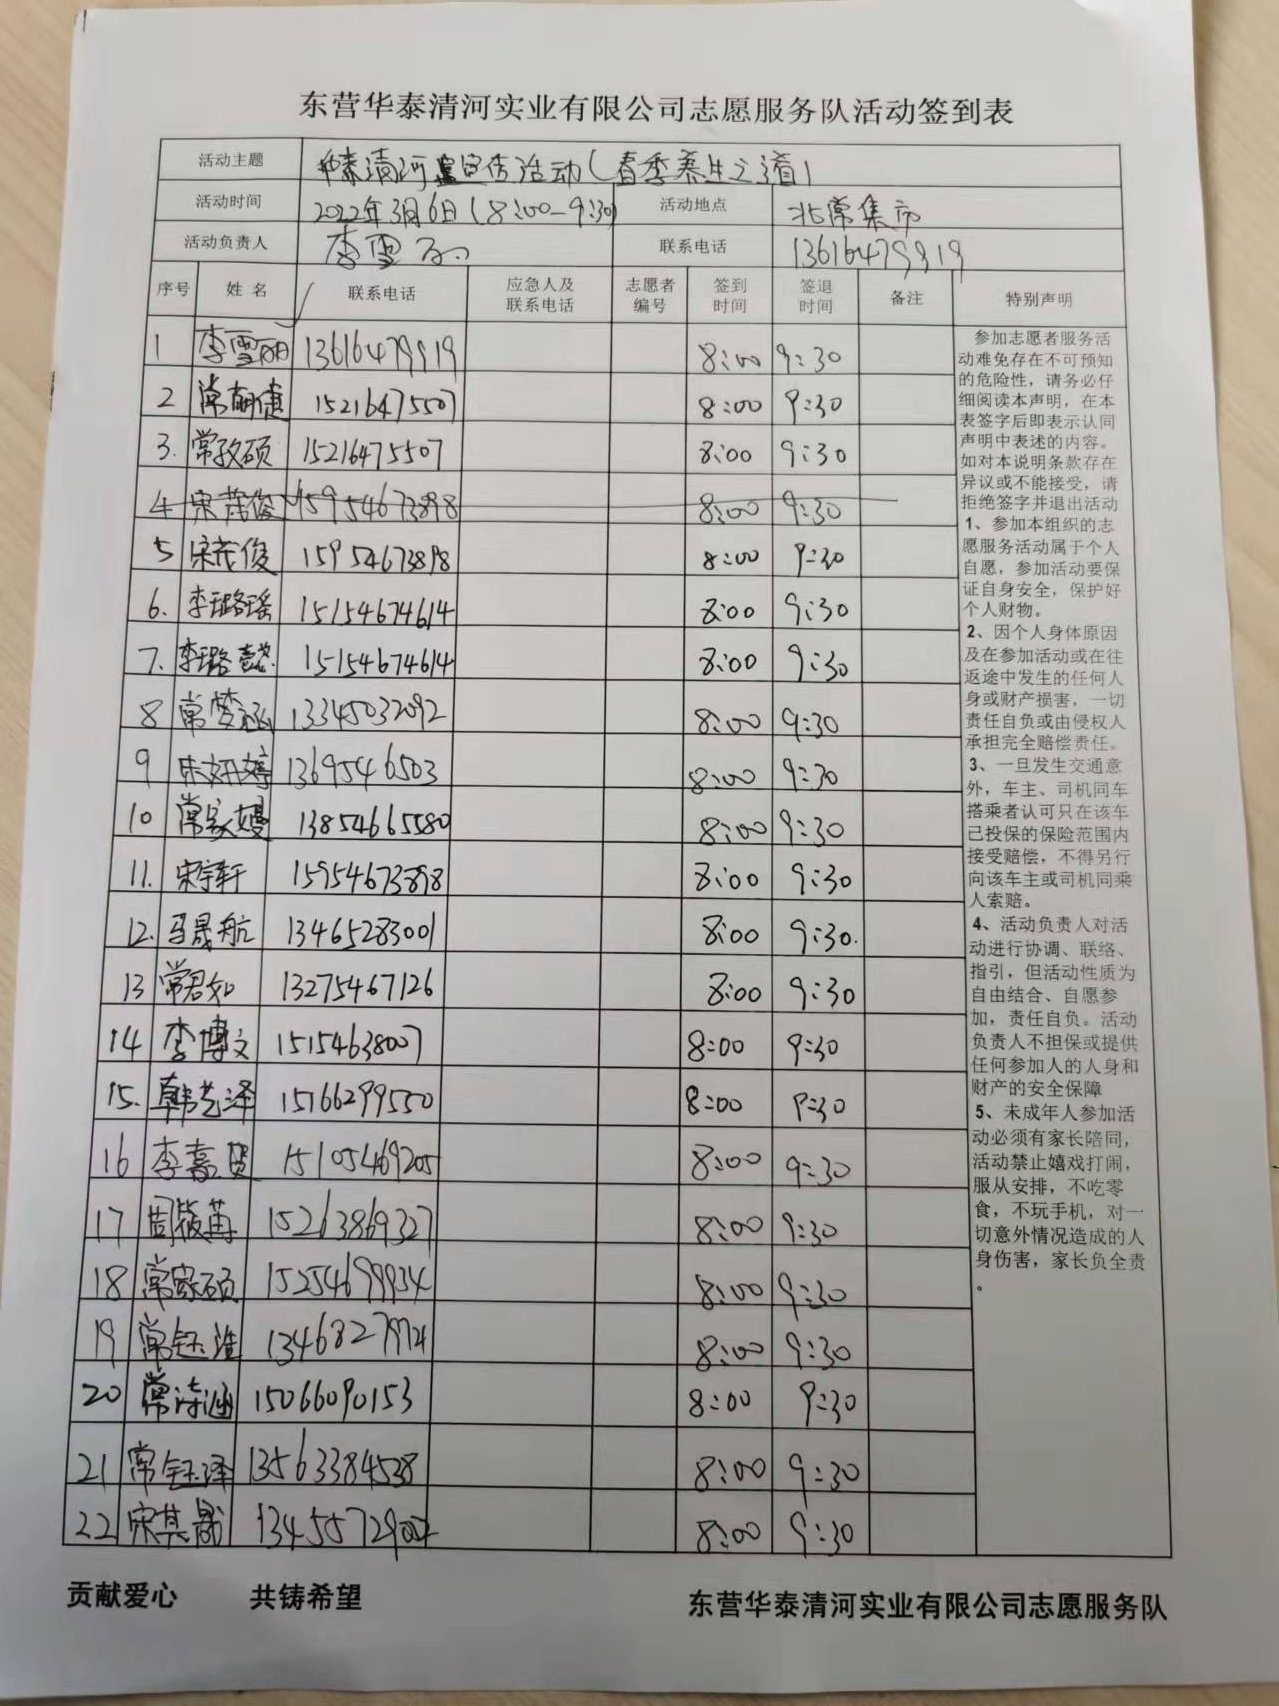 东营华泰清河实业有限公司志愿服务队活动签到表
活动主题 华泰清河宣传活动(春季养生之道)
活动时间 2022年3月6日(8:00-9:30) 活动地点 北常集市
活动负责人 李雪 联系电话 13616479919
序号 姓名 联系电话 应急人及联系电话 志愿者编号 签到时间 签退时间 备注 特别声明
1 李雪丽 13616479919 8:00 9:30
2 常萌倢 15216475507 8:00 9:30
3. 常孜硕 15216475507 8:00 9:30
4 宋茂俊 15954673898 8:00 9:30
5 宋茂俊 15954673898 8:00 9:30
6. 李璐瑶 15154674614 8:00 9:30
7. 李璐 15154674614 8:00 9:30
8 常梦涵 13345032092 8:00 9:30
9 宋妍婷 13695446503 8:00 9:30
10 常家嫚 13854665580 8:00 9:30
11. 宋宇轩 15954673898 8:00 9:30
12. 马晟航 13465283001 8:00 9:30.
13 常君如 13275467126 8:00 9:30
14 李博文 15154638007 8:00 9:30
15. 韩艺泽 15166299550 8:00 9:30
16 李嘉贺 15105469205 8:00 9:30
17 周筱苒 15263869327 8:00 9:30
18 常家硕 15254699934 8:00 9:30
19 常钰淮 8:00 9:30
20 常涛涵 15066090153 8:00 9:30
21 常钰泽 13563384538 8:00 9:30
22 宋其晟 8:00 9:30
参加志愿者服务活
动难免存在不可预知
的危险性，请务必仔
细阅读本声明，在本
表签字后即表示认同
声明中表述的内容。
如对本说明条款存在
异议或不能接受，请
拒绝签字并退出活动
1、参加本组织的志
愿服务活动属于个人
自愿，参加活动要保
证自身安全，保护好
个人财物。
2、因个人身体原因
及在参加活动或在往
返途中发生的任何人
身或财产损害，一切
责任自负或由侵权人
承担完全赔偿责任。
3、一旦发生交通意
外，车主、司机同车
搭乘者认可只在该车
已投保的保险范围内
接受赔偿，不得另行
向该车主或司机同乘
人索赔。
4、活动负责人对活
动进行协调、联络、
指引，但活动性质为
自由结合、自愿参
加，责任自负。活动
负责人不担保或提供
任何参加人的人身和
财产的安全保障
5、未成年人参加活
动必须有家长陪同，
活动禁止嬉戏打闹，
服从安排，不吃零
食，不玩手机，对一
切意外情况造成的人
身伤害，家长负全责
。
贡献爱心 共铸希望 东营华泰清河实业有限公司志愿服务队